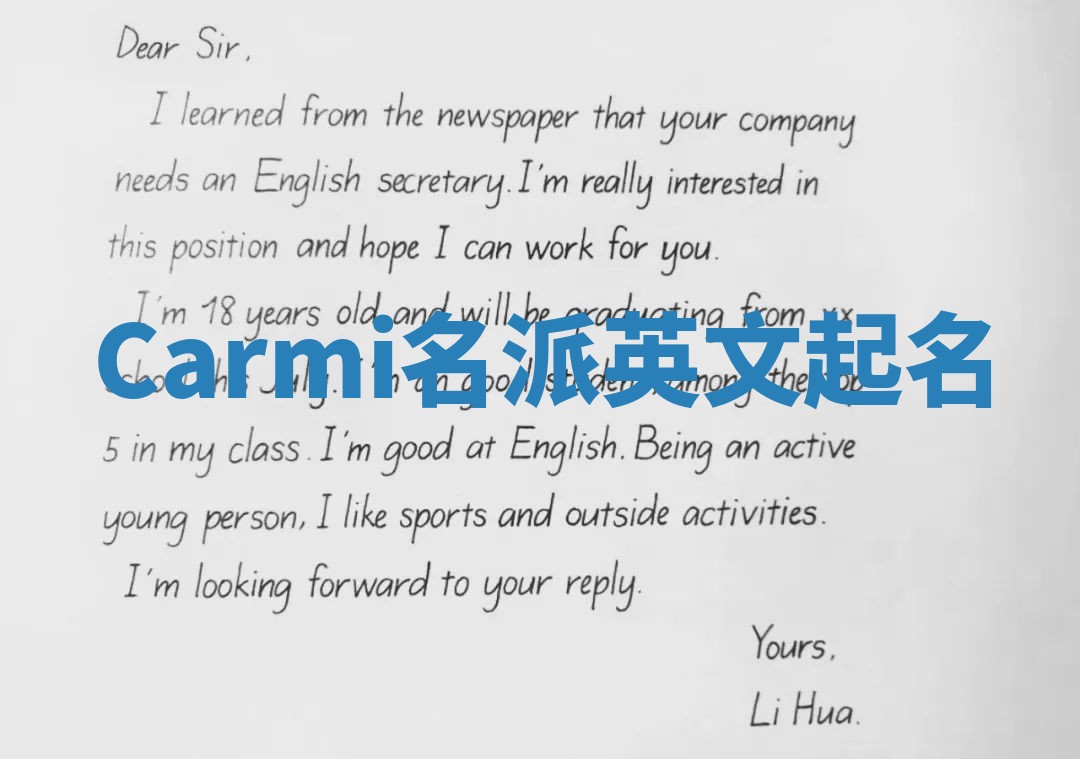 Dear Sir,
I learned from the newspaper that your company
needs an English secretary. I'm really interested in
this position and hope I can work for you.
I'm 18 years old and will be graduating from xx
Carmi名派英文起名
school this July. I'm an good student, among the top
5 in my class. I'm good at English. Being an active
young person, I like sports and outside activities.
I'm looking forward to your reply.
Yours,
Li Hua.